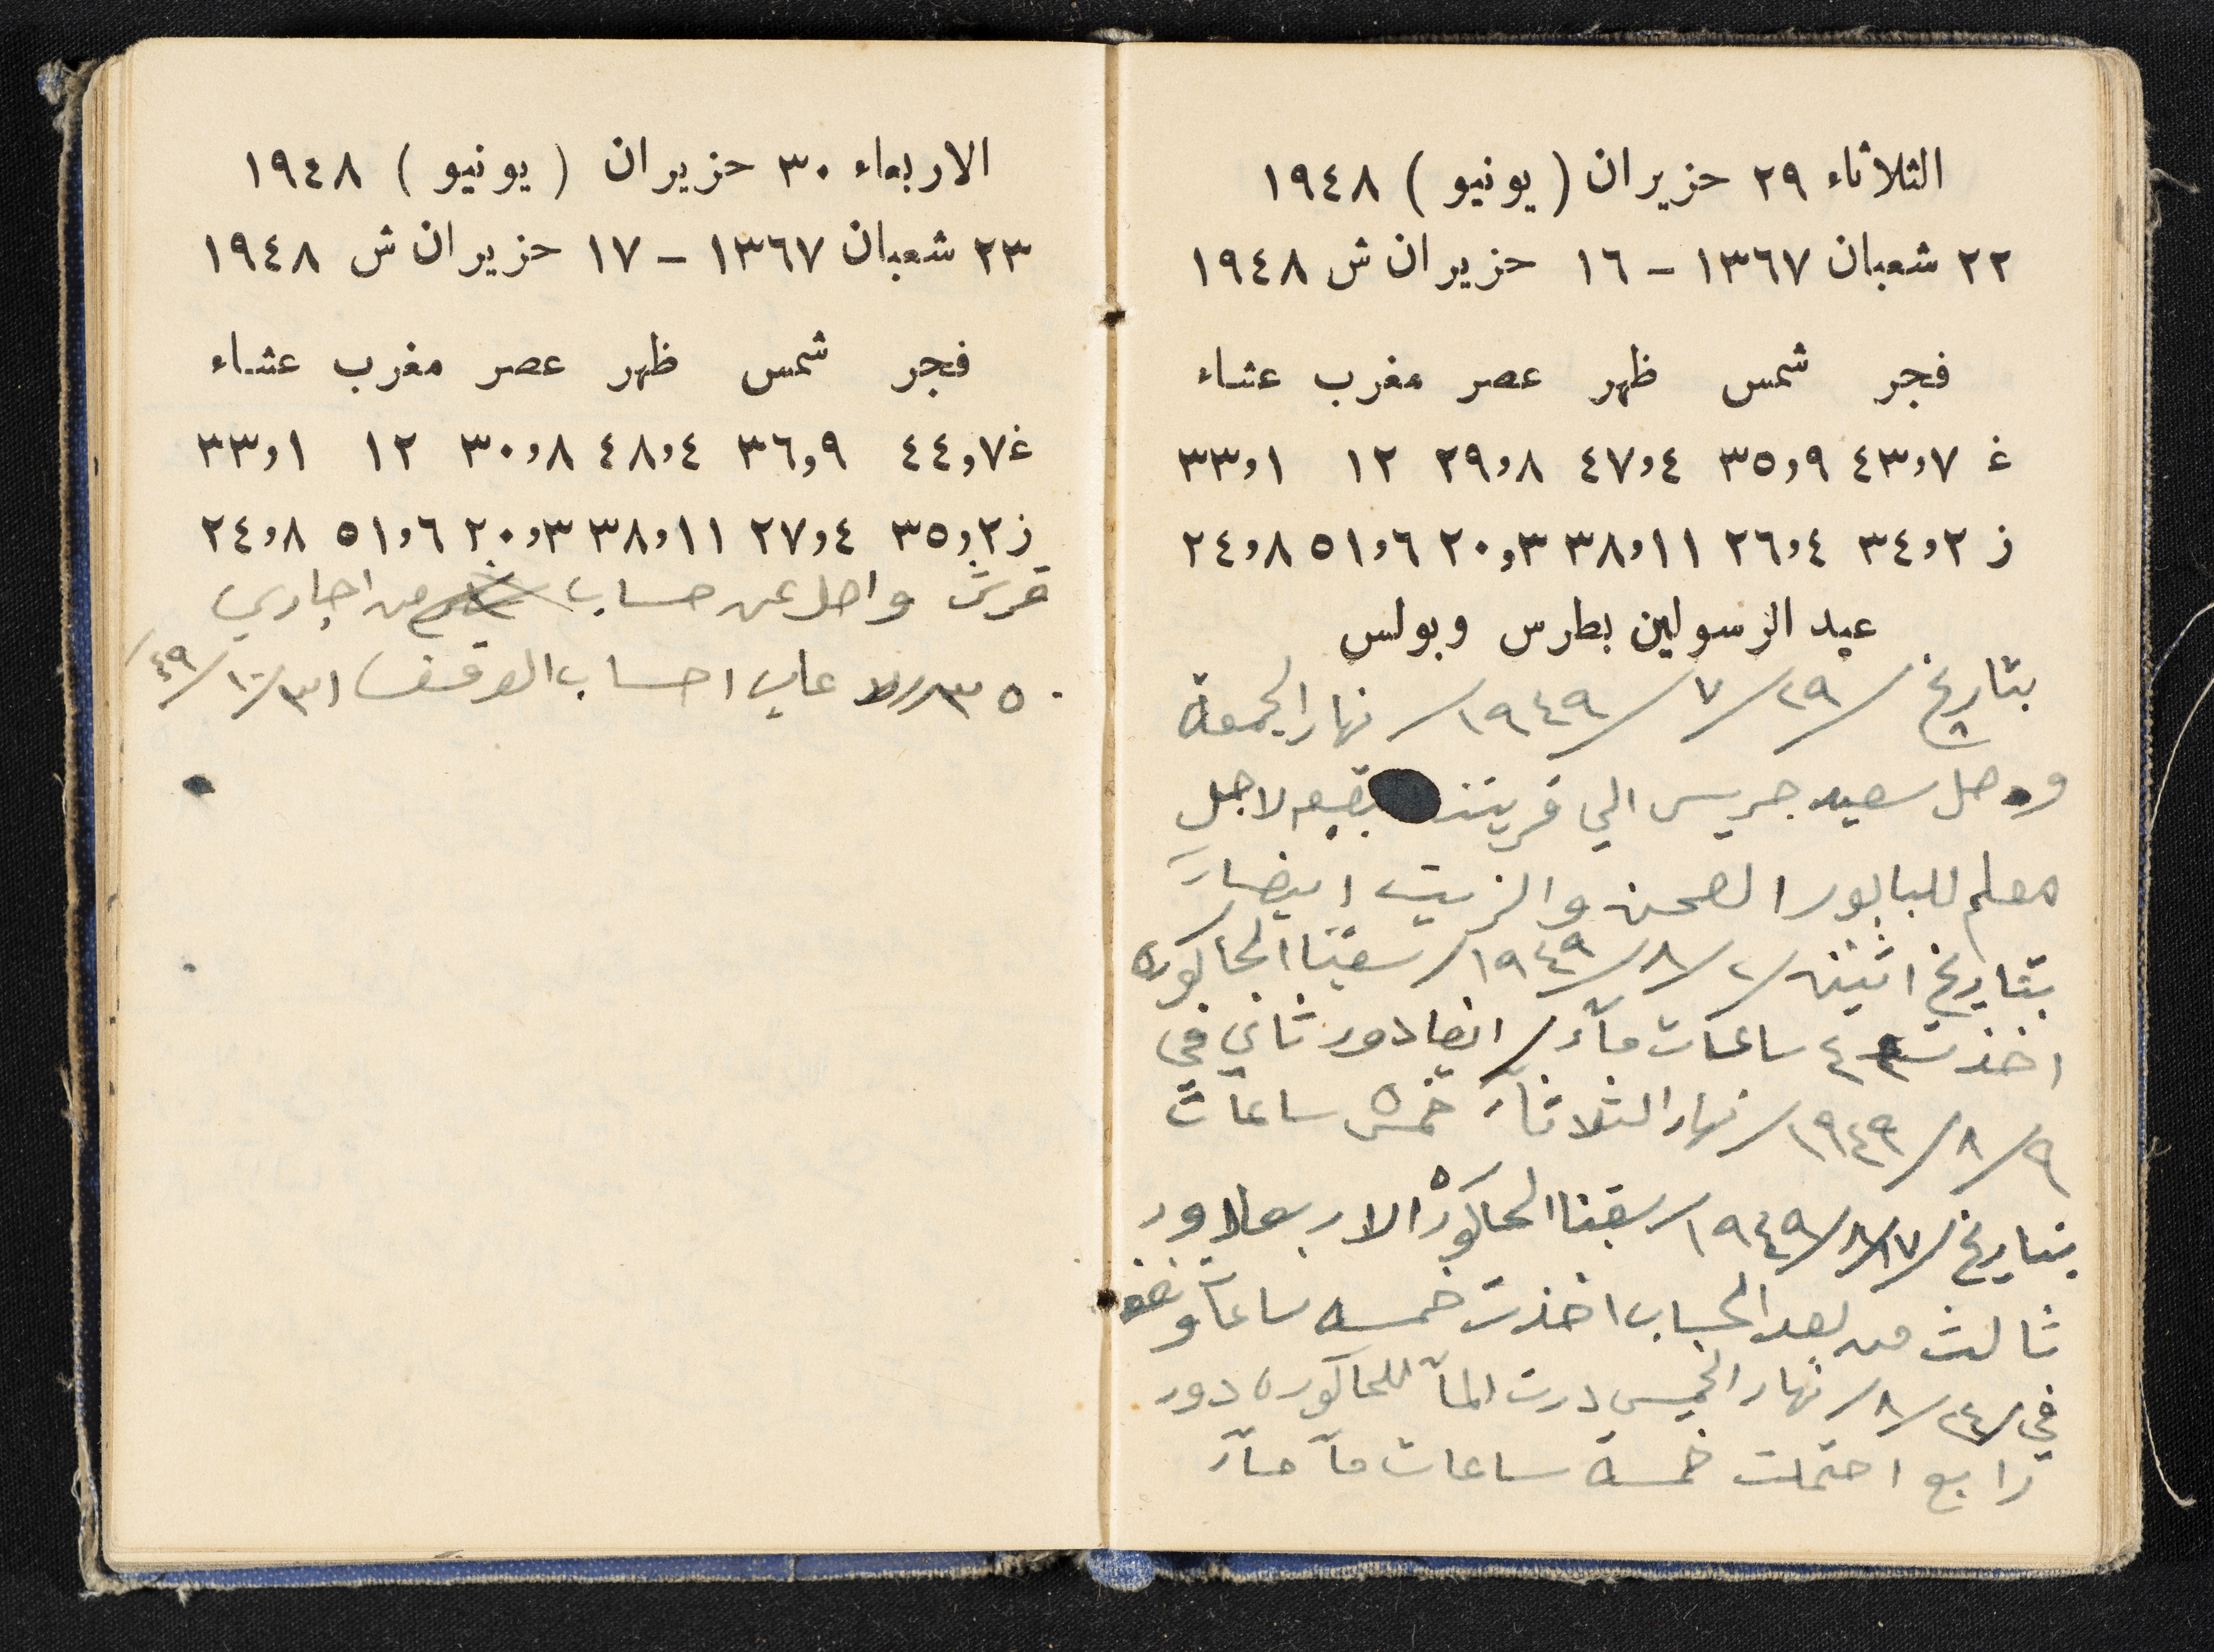 الثلاثاء ٢٩ حزيران ( يونيو ) ١٩٤٨
٢٢ شعبان ١٣٦٧ - ١٦ حزيران ش ١٩٤٨
فجر شمس ظهر عصر مغرب عشاء
غ ٤٣،٧ ٣٥،٩ ٤٧،٤ ٢٩،٨ ١٢ ٣٣،١
ز ٣٤،٢ ٢٦،٤ ٣٨،١١ ٢٠،٣ ٥١،٦ ٢٤،٨
عيد الرسولين بطرس وبولس
بتاريخ /٢٩/ ٧/ ١٩٤٩/ نهار الجمعة
وصل سعيد جريس الي قريتنا بقيعه لاجل
معلم للبابور الصحن والزيت ايضاً
بتاريخ اثنين /٢/ ٨/ ١٩٤٩/ سقينا الحاكوره
اخذت ٤ ساعات مآء / ايضا دور ثاني في
٩/ ٨/ ١٩٤٩/ نهار الثلاثآء خمسة ساعات
بتاريخ /١٧/ ٨/ ١٩٤٩/ سقينا الحاكورة الاربعا دور
ثالث من بعد الحساب اخذت خمسه ساعات ونصف
في /٢٤/ ٨/ نهار الخميس درت المآ للحاكوره دور
رابع احتملت خمسة ساعات مآ
الاربعاء ٣٠ حزيران ( يونيو ) ١٩٤٨
٢٣ شعبان ١٣٦٧ - ١٧ حزيران ش ١٩٤٨
فجر شمس ظهر عصر مغرب عشاء
غ ٤٤،٧ ٣٦،٩ ٤٨،٤ ٣٠،٨ ١٢ ٣٣،١
ز ٣٥،٢ ٢٧،٤ ٣٨،١١ ٢٠،٣ ٥١،٦ ٢٤،٨
قرش واصل عن حساب من اجاري
علي احساب الوقف ٣١/ ١٠/ ٤٩/